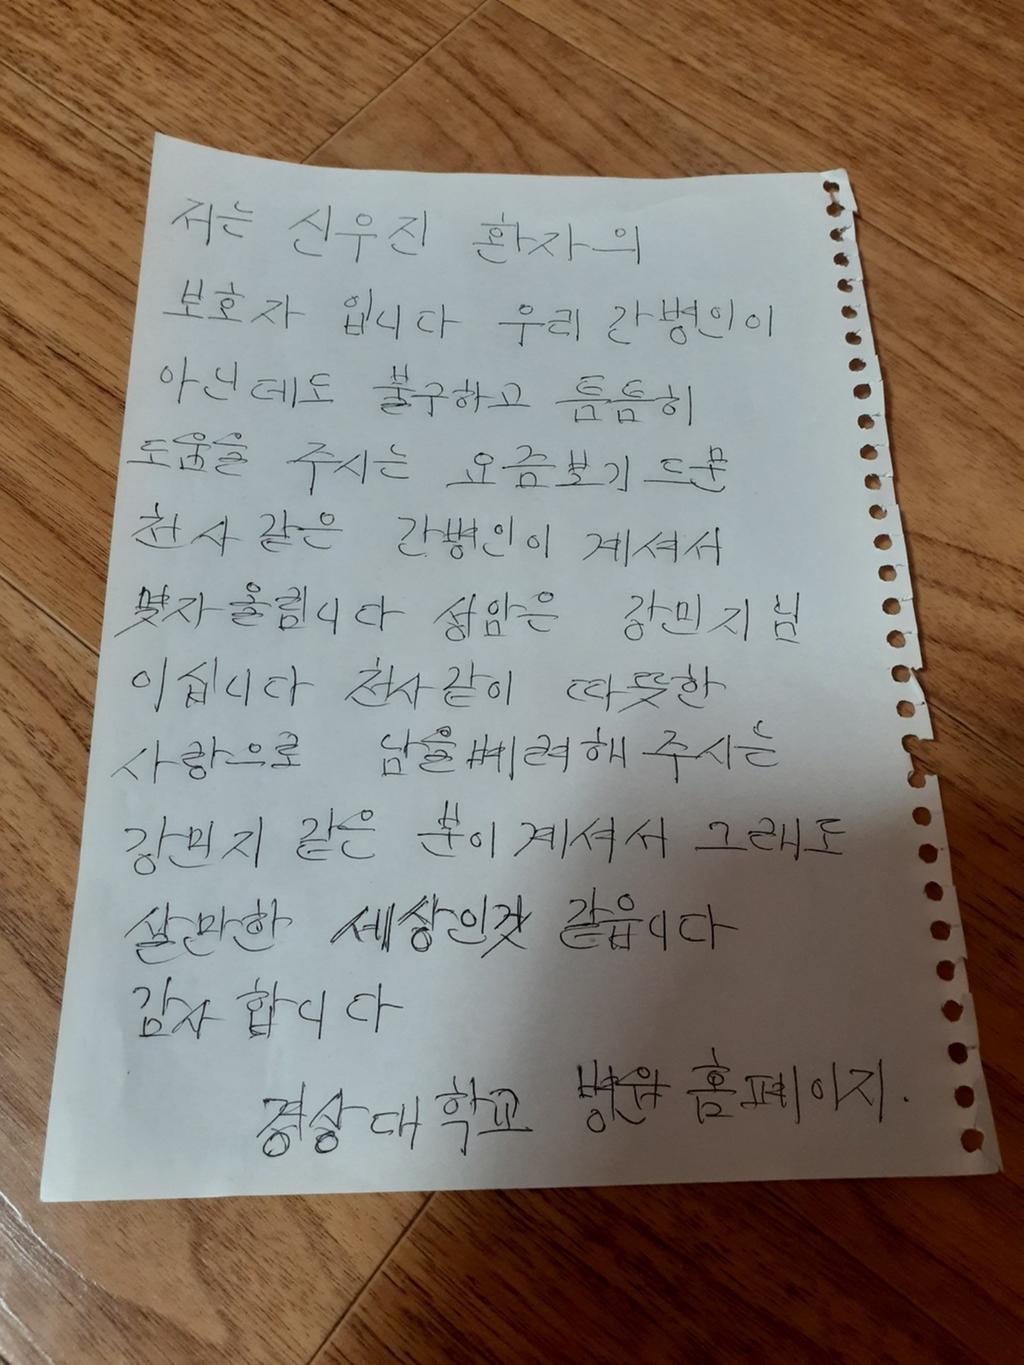 저는 신우진 환자의
보호자 입니다 우리 간병인이
아닌데도 불구하고 틈틈히
도움을 주시는 요즘보기 드문
천사같은 간병인이 계셔서
몇자올립니다 성암은 강민지님
이십니다 천사같이 따뜻한
사랑으로 남을빼려해 주시는
강민지 같은 분이 계셔서 그래도
살만한 세상인것 같읍니다
감사 합니다
경상대학교 병원 홈페이지.